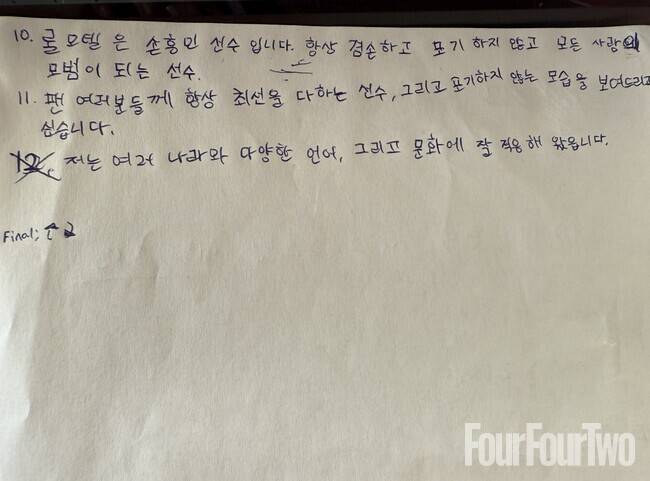 10. 롤 모텔 은 손흥민 선수 입니다. 항상 겸손하고 포기 하지 않고 모든 사람의
모범이 되는 선수.
11. 팬 여러분들께 항상 최선을 다하는 선수, 그리고 포기하지 않는 모습을 보여드리고
싶습니다.
12. 저는 여러 나라와 다양한 언어, 그리고 문화에 잘 적응해 왔읍니다.
Final;
FourFourTwo